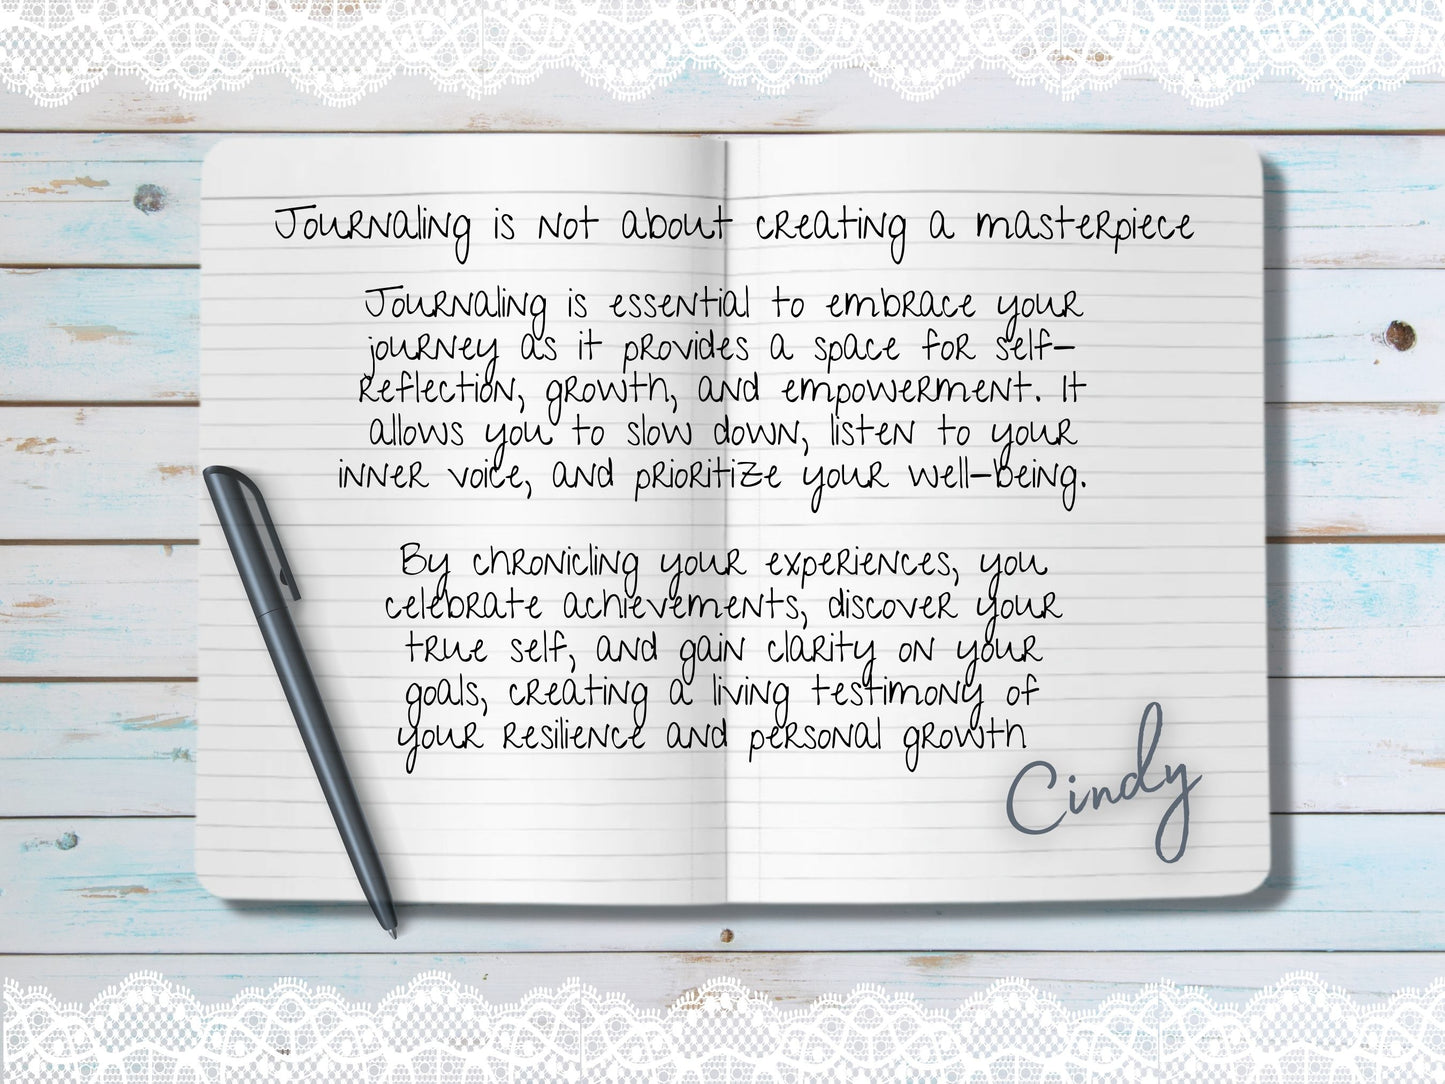 Journaling is not about creating a masterpiece
Journaling is essential to embrace your
journey as it provides a space for self-
reflection, growth, and empowerment. It
allows you to slow down, listen to your
inner voice, and prioritize your well-being.
By chronicling your experiences, you
celebrate achievements, discover your
true self, and gain clarity on your
goals, creating a living testimony of
your resilience and personal growth
Cindy